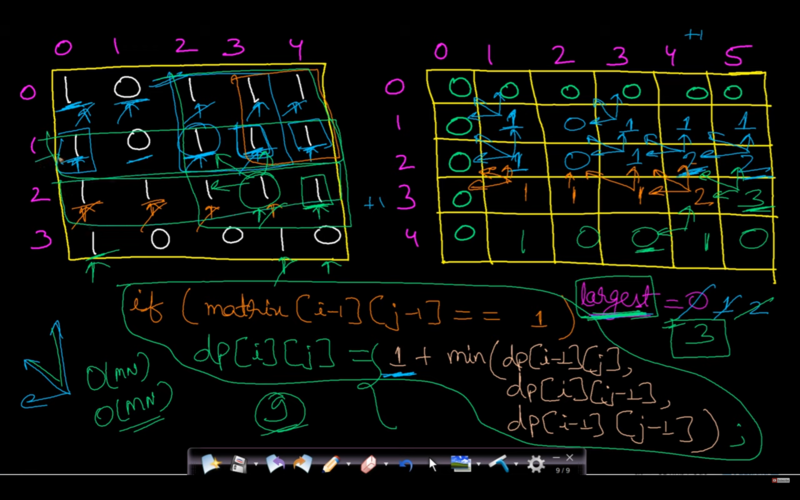 0 1 2 3 4
0 1 0 1 1 1
1 1 0 1 1 1
2 1 1 1 1 1
3 1 0 0 1 0
+1
0 1 2 3 4 5
0 0 0 0 0 0 0
1 0 1 0 1 1 1
2 0 1 0 1 2 2
3 0 1 1 1 2 3
4 0 1 0 0 1 0
+1
if (matrix[i-1][j-1] == 1)
dp[i][j] = (1 + min(dp[i-1][j],
dp[i][j-1],
dp[i-1][j-1]) ;
largest = 0 1 2
3
O(MN)
O(MN)
9
9/9